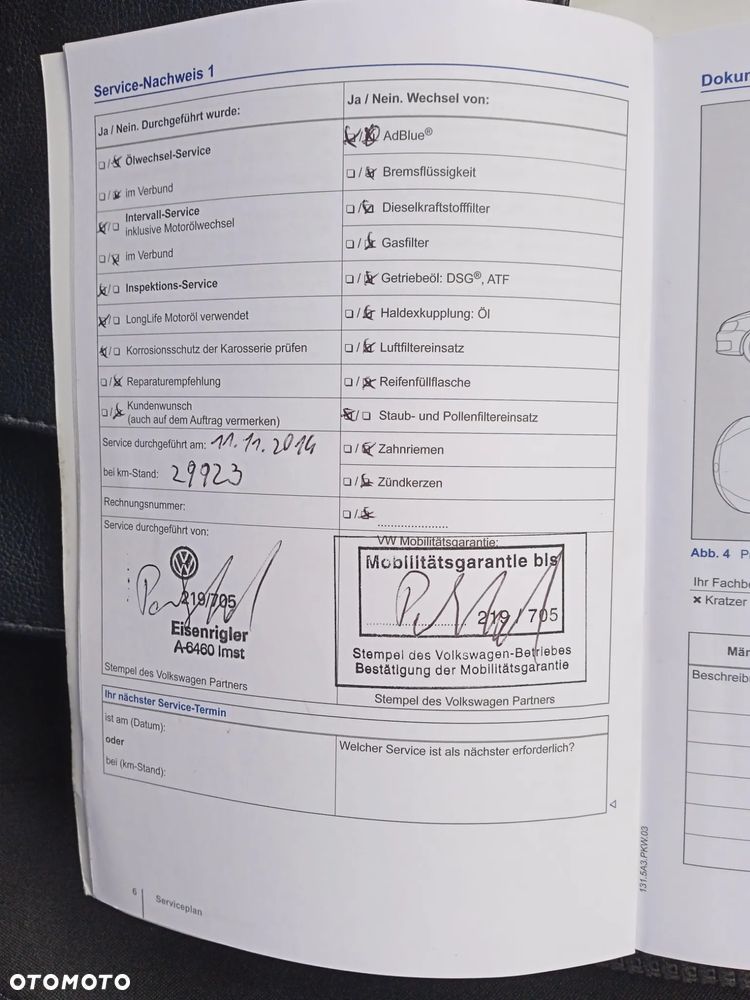 Service-Nachweis 1
Ja / Nein. Durchgeführt wurde:
Ölwechsel-Service
im Verbund
Intervall-Service
inklusive Motorölwechsel
im Verbund
Inspektions-Service
LongLife Motoröl verwendet
Korrosionsschutz der Karosserie prüfen
Reparaturempfehlung
Kundenwunsch
(auch auf dem Auftrag vermerken)
Service durchgeführt am: 11.11.2014
bei km-Stand: 29923
Rechnungsnummer:
Service durchgeführt von:
219/705
Eisenrigler
A-6460 Imst
Stempel des Volkswagen Partners
Ja / Nein. Wechsel von:
AdBlue®
Bremsflüssigkeit
Dieselkraftstofffilter
Gasfilter
Getriebeöl: DSG®, ATF
Haldexkupplung: Öl
Luftfiltereinsatz
Reifenfüllflasche
Staub- und Pollenfiltereinsatz
Zahnriemen
Zündkerzen
VW Mobilitätsgarantie:
Mobilitätsgarantie bis
219 / 705
Stempel des Volkswagen-Betriebes
Bestätigung der Mobilitätsgarantie
Stempel des Volkswagen Partners
Ihr nächster Service-Termin
ist am (Datum):
oder
bei (km-Stand):
Welcher Service ist als nächster erforderlich?
6
Serviceplan
131.5A3.PKW.03
Dokum
Abb. 4 P
Ihr Fachbe
× Kratzer
Män
Beschreibu
OTOMOTO